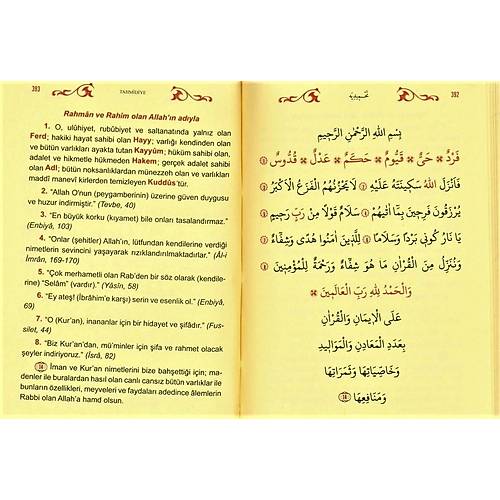 تحميديه 392
بِسْمِ اللّٰهِ الرَّحْمٰنِ الرَّحِيمِ
فَرْدٌ ❋ حَىٌّ ❋ قَيُّومٌ ❋ حَكَمٌ ❋ عَدْلٌ ❋ قُدُّوسٌ ①
فَاَنْزَلَ اللّٰهُ سَكِينَتَهُ عَلَيْهِ ② لَا يَحْزُنُهُمُ الْفَزَعُ الْاَكْبَرُ ③
يُرْزَقُونَ فَرِحِينَ بِمَٓا اٰتٰيهُمْ ④ سَلَامٌ قَوْلًا مِنْ رَبٍّ رَحِيمٍ ⑤
يَا نَارُ كُونِى بَرْدًا وَسَلَامًا ⑥ لِلَّذِينَ اٰمَنُوا هُدًى وَشِفَٓاءٌ ⑦
وَنُنَزِّلُ مِنَ الْقُرْاٰنِ مَا هُوَ شِفَٓاءٌ وَرَحْمَةٌ لِلْمُؤْمِنِينَ ⑧
وَالْحَمْدُ لِلّٰهِ رَبِّ الْعَالَمِينَ ❋
عَلَى الْاِيمَانِ وَالْقُرْاٰنِ
بِعَدَدِ الْمَعَادِنِ وَالْمَوَالِيدِ
وَخَاصِّيَاتِهَا وَثَمَرَاتِهَا
وَمَنَافِعِهَا ⑭
393 TAHMÎDİYE
Rahmân ve Rahîm olan Allah'ın adıyla
1. O, ulûhiyet, rubûbiyet ve saltanatında yalnız olan
Ferd; hakiki hayat sahibi olan Hayy; varlığı kendinden olan
ve bütün varlıkları ayakta tutan Kayyûm; hüküm sahibi olan,
adalet ve hikmetle hükmeden Hakem; gerçek adalet sahibi
olan Adl; bütün noksanlıklardan münezzeh olan ve varlıkları
maddî manevî kirlerden temizleyen Kuddûs'tür.
2. "Allah O'nun (peygamberinin) üzerine güven duygusu
ve huzur indirmiştir." (Tevbe, 40)
3. "En büyük korku (kıyamet) bile onları tasalandırmaz."
(Enbiyâ, 103)
4. "Onlar (şehitler) Allah'ın, lütfundan kendilerine verdiği
nimetlerin sevincini yaşayarak rızıklandırılmaktadırlar." (Âl-i
İmrân, 169-170)
5. "Çok merhametli olan Rab'den bir söz olarak (kendile-
rine) "Selâm" (vardır)." (Yâsîn, 58)
6. "Ey ateş! (İbrâhim'e karşı) serin ve esenlik ol." (Enbiyâ,
69)
7. "O (Kur'an), inananlar için bir hidayet ve şifâdır." (Fus-
silet, 44)
8. "Biz Kur'an'dan, mü'minler için şifa ve rahmet olacak
şeyler indiriyoruz." (İsrâ, 82)
⑭ İman ve Kur'an nimetlerini bize bahşettiği için; ma-
denler ile buralardan hâsıl olan canlı cansız bütün varlıklar ile
bunların özellikleri, meyveleri ve faydaları adedince âlemlerin
Rabbi olan Allah'a hamd olsun.